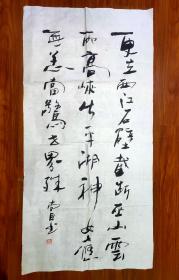 更立西江石壁截斷巫山雲
雨高峽出平湖神女應
無恙當驚世界殊
書